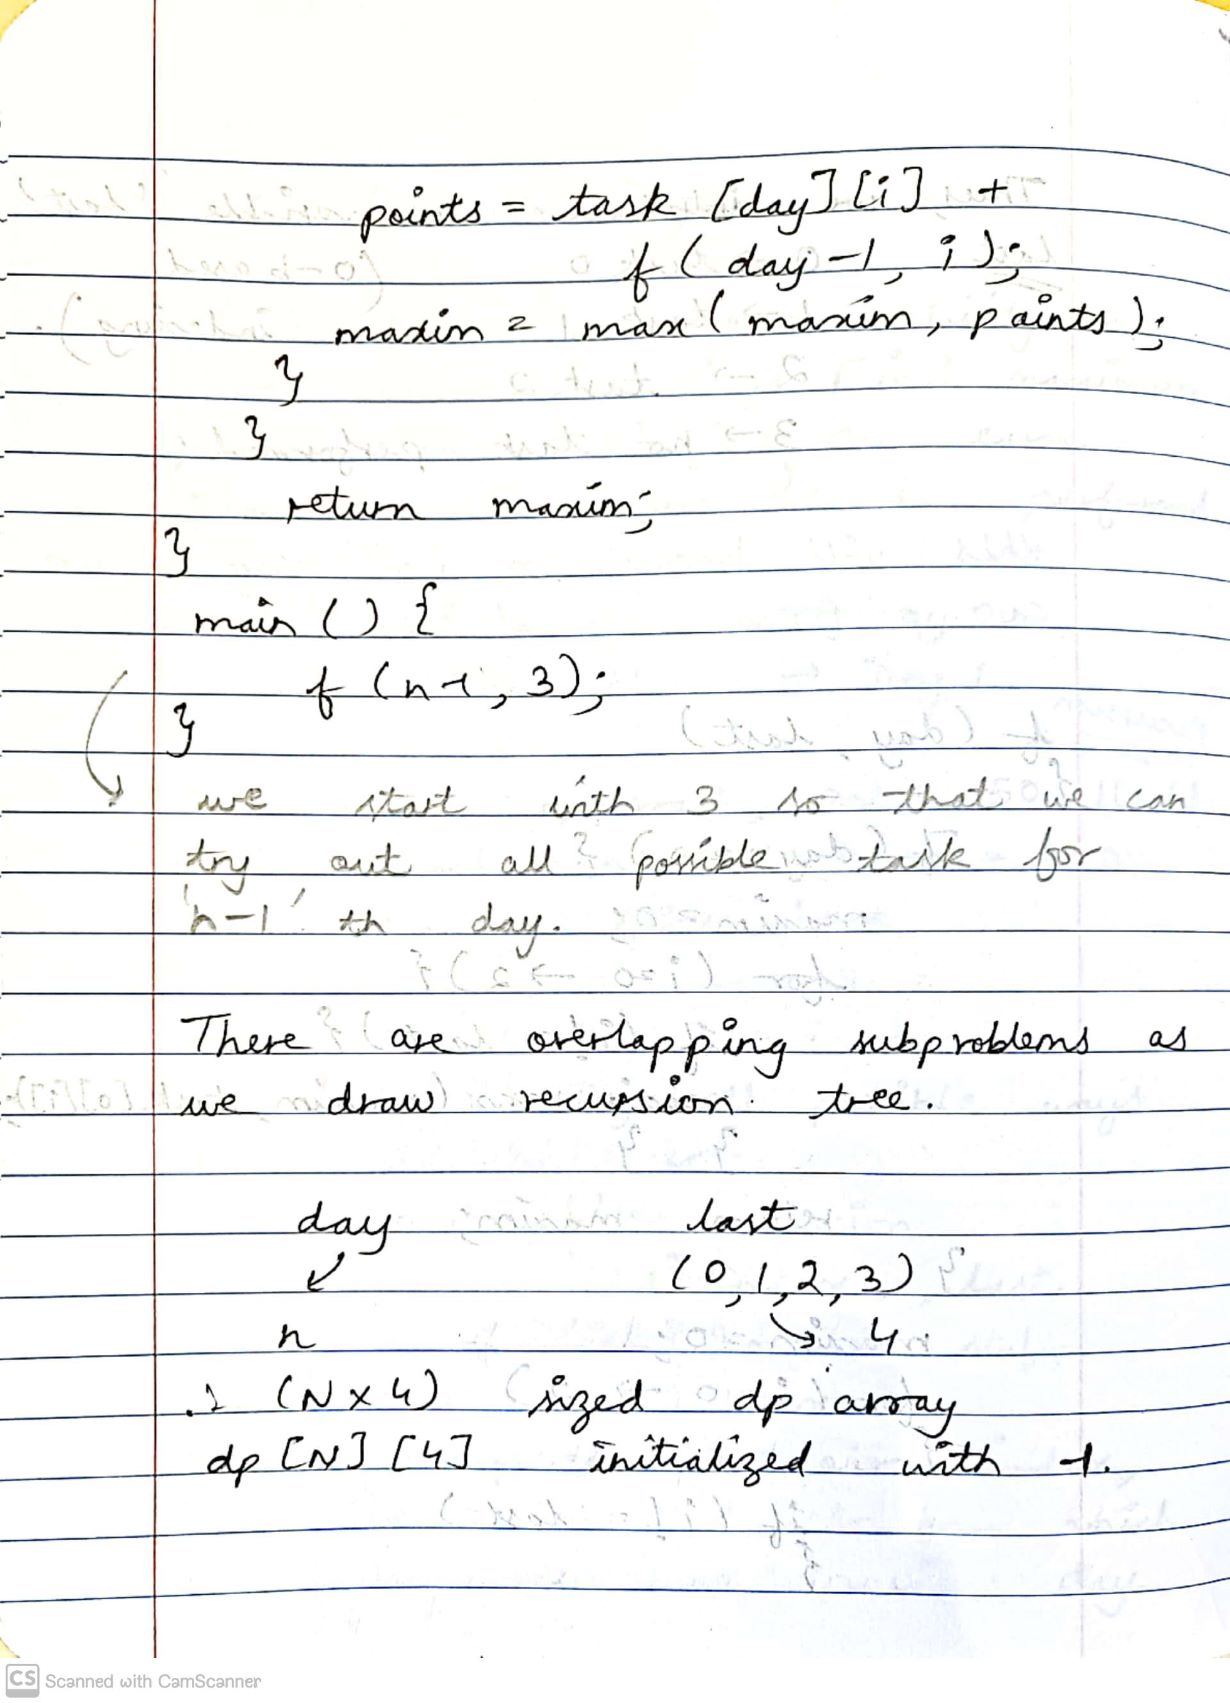 points = task [day] [i] +
f ( day - 1, i );
maxim = max ( maxim, points );
}
}
return maxim;
}
main () {
f (n-1, 3);
}
we start with 3 so that we can
try out all possible task for
'n-1' th day.
There are overlapping subproblems as
we draw recursion tree.
day last
↙ (0, 1, 2, 3)
n ↘ 4
∴ (N x 4) sized dp array
dp [N] [4] initialized with -1.
CS Scanned with CamScanner